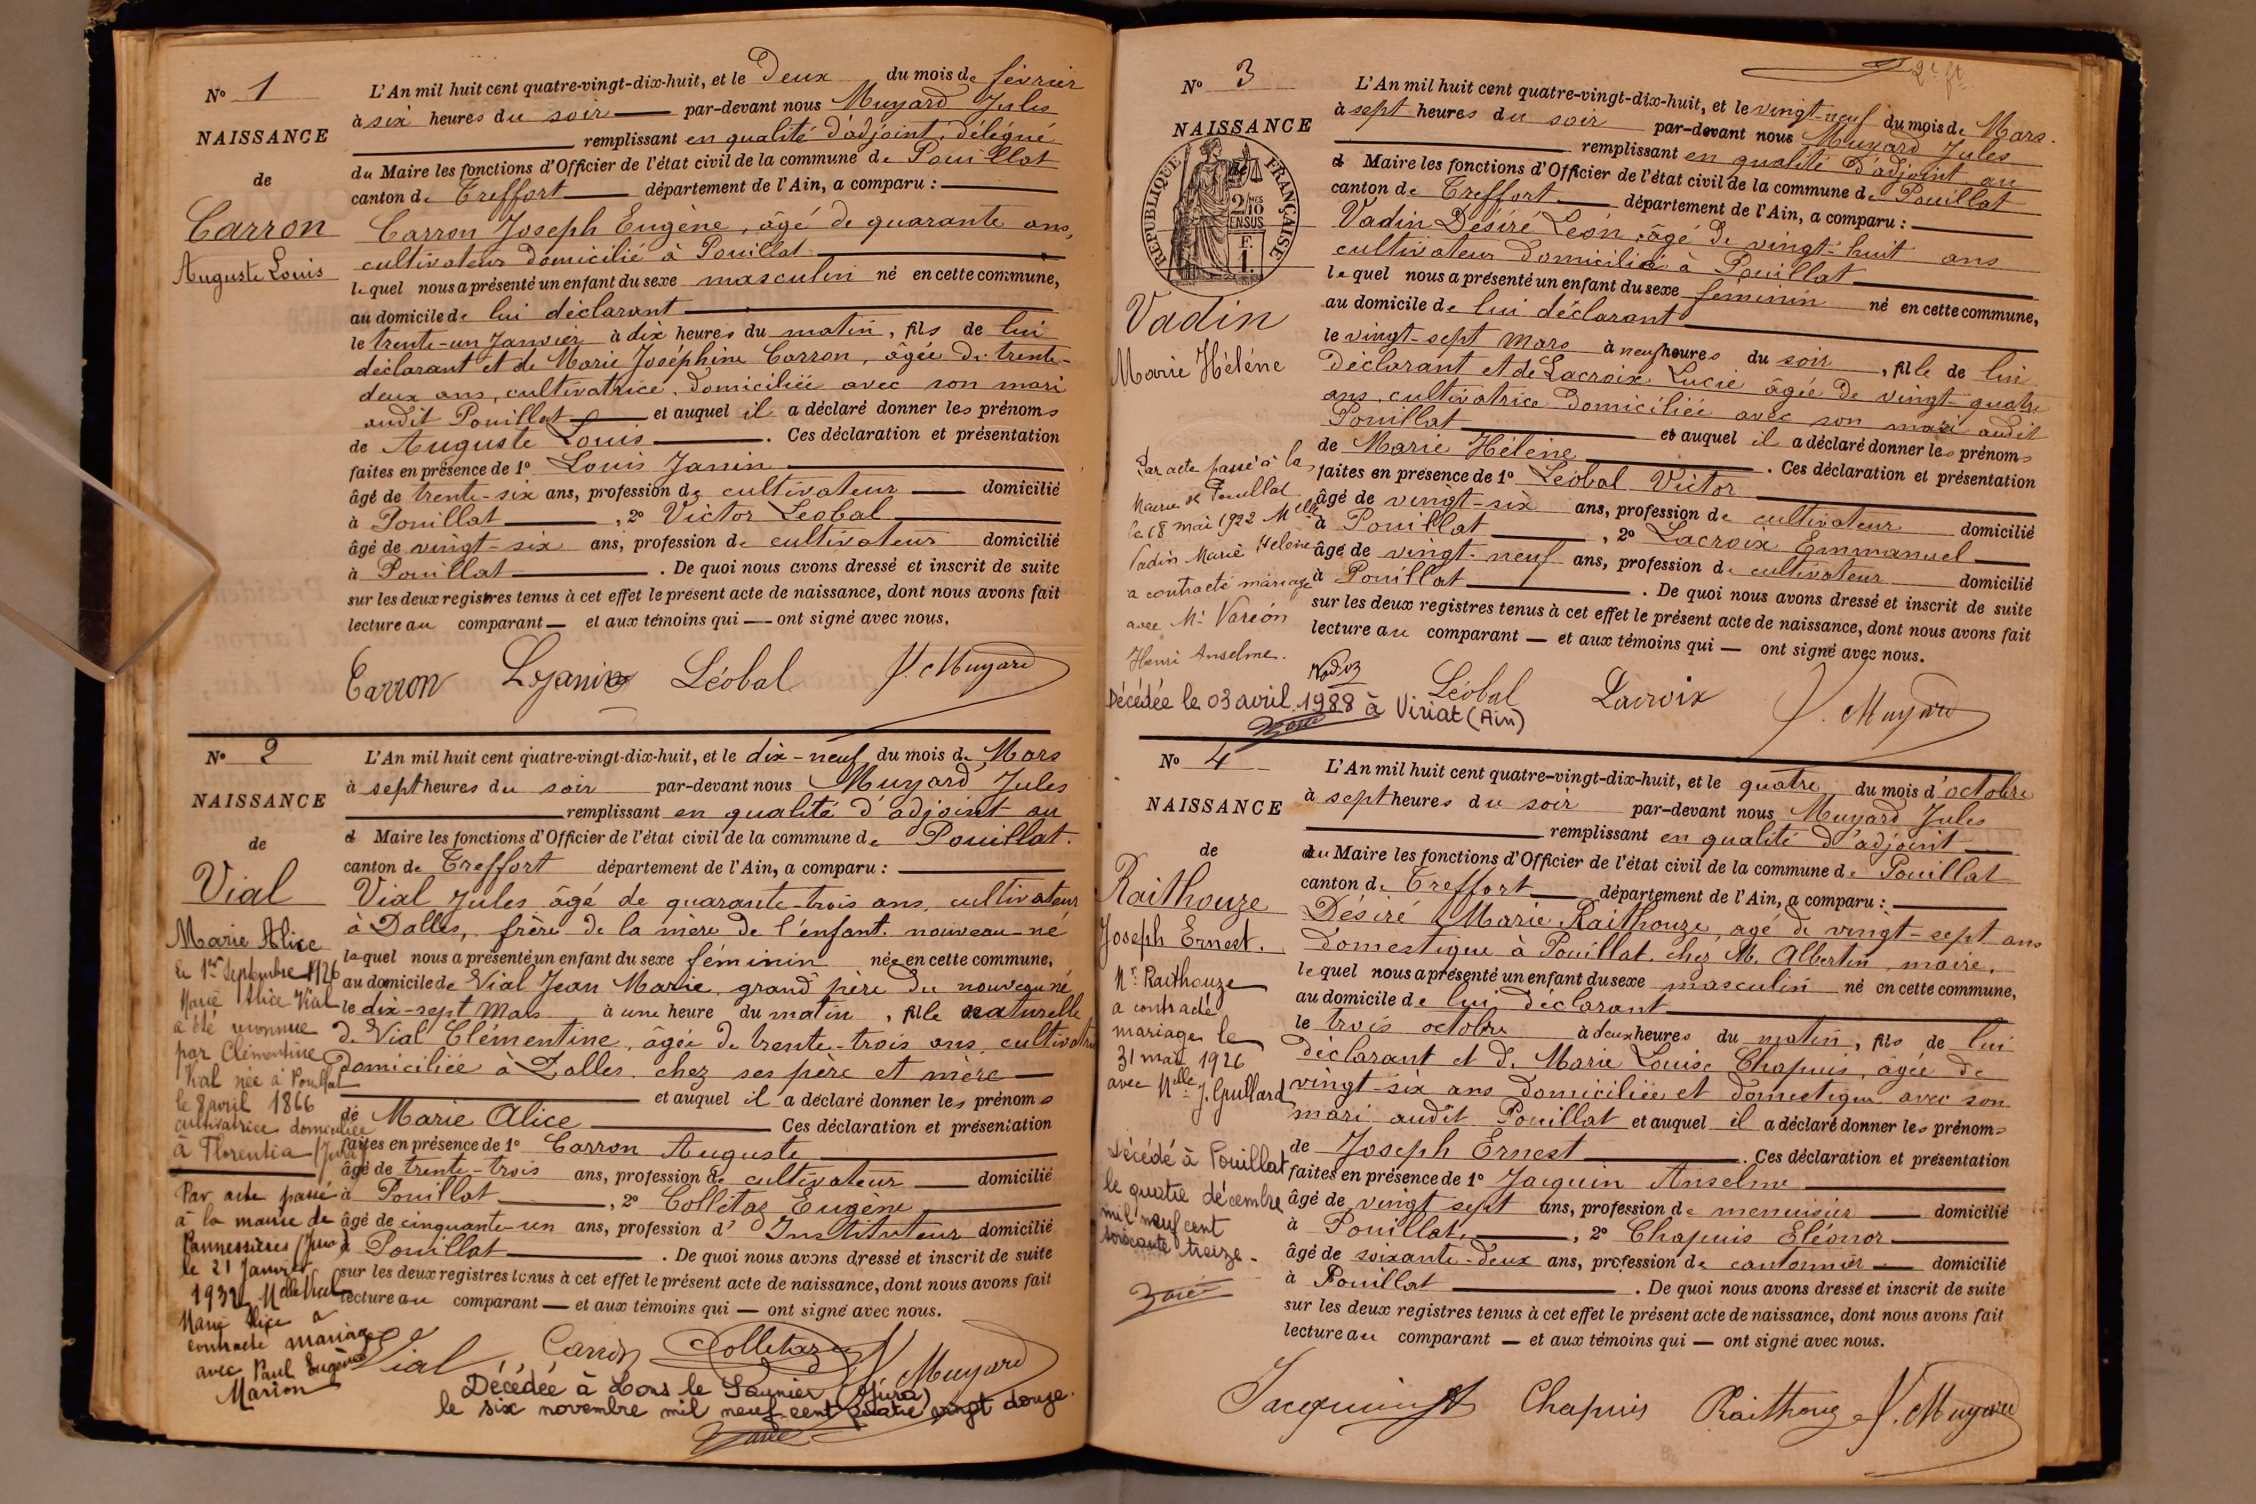 Nº 1
NAISSANCE
de
Carron
Auguste Louis
L'An mil huit cent quatre-vingt-dix-huit, et le Deux du mois de février
à six heures du soir par-devant nous Muyard Jules
remplissant en qualité d'adjoint, délégué
du Maire les fonctions d'Officier de l'état civil de la commune de Pouillat
canton de Treffort département de l'Ain, a comparu :
Carron Joseph Eugène, âgé de quarante ans,
cultivateur domicilié à Pouillat
lequel nous a présenté un enfant du sexe masculin né en cette commune,
au domicile de lui déclarant
le trente-un Janvier à dix heures du matin, fils de lui
déclarant et de Marie Joséphine Carron, âgée de trente-
deux ans, cultivatrice, domiciliée avec son mari
audit Pouillat et auquel il a déclaré donner les prénoms
de Auguste Louis. Ces déclaration et présentation
faites en présence de 1º Louis Janin
âgé de trente-six ans, profession de cultivateur domicilié
à Pouillat, 2º Victor Léobal
âgé de vingt-six ans, profession de cultivateur domicilié
à Pouillat. De quoi nous avons dressé et inscrit de suite
sur les deux registres tenus à cet effet le présent acte de naissance, dont nous avons fait
lecture au comparant — et aux témoins qui — ont signé avec nous.
Carron L Janin Léobal J. Muyard
Nº 2
NAISSANCE
de
Vial
Marie Alice
le 1er Septembre 1926
Marie Alice Vial
a été reconnue
par Clémentine
Vial née à Pouillat
le 8 avril 1866
cultivatrice domiciliée
à Florentia (Jura)
Par acte passé
à la mairie de
Pannessières (Jura)
le 21 Janvier
1932 Melle Vial
Marie Alice a
contracté mariage
avec Paul Eugène
Marion
L'An mil huit cent quatre-vingt-dix-huit, et le dix-neuf du mois de Mars
à sept heures du soir par-devant nous Muyard Jules
remplissant en qualité d'adjoint au
d Maire les fonctions d'Officier de l'état civil de la commune de Pouillat.
canton de Treffort département de l'Ain, a comparu :
Vial Jules âgé de quarante-trois ans, cultivateur
à Dalles, frère de la mère de l'enfant nouveau-né
lequel nous a présenté un enfant du sexe féminin née en cette commune,
au domicile de Vial Jean Marie, grand père du nouveau né
le dix-sept Mars à une heure du matin, fille naturelle
de Vial Clémentine, âgée de trente-trois ans, cultivatrice
domiciliée à Dalles chez ses père et mère
et auquel il a déclaré donner les prénoms
de Marie Alice Ces déclaration et présentation
faites en présence de 1º Carron Auguste
âgé de trente-trois ans, profession de cultivateur domicilié
à Pouillat, 2º Colletaz Eugène
âgé de cinquante-un ans, profession d'Instituteur domicilié
à Pouillat. De quoi nous avons dressé et inscrit de suite
sur les deux registres tenus à cet effet le présent acte de naissance, dont nous avons fait
lecture au comparant — et aux témoins qui — ont signé avec nous.
Vial Carron Colletaz J. Muyard
Décédée à Lons le Saunier (Jura)
le six novembre mil neuf cent quatre vingt douze.
2e ft
Nº 3
NAISSANCE
de
RÉPUBLIQUE FRANÇAISE
2/10 EN SUS
F. 1.
Vadin
Marie Hélène
Par acte passé à la
Mairie de Pouillat
le 18 mai 1922 Melle
Vadin Marie Hélène
a contracté mariage
avec Mr Varéon
Henri Anselme.
L'An mil huit cent quatre-vingt-dix-huit, et le vingt-neuf du mois de Mars.
à sept heures du soir par-devant nous Muyard Jules
remplissant en qualité d'adjoint au
d Maire les fonctions d'Officier de l'état civil de la commune de Pouillat
canton de Treffort département de l'Ain, a comparu :
Vadin Désiré Léon, âgé de vingt-huit ans
cultivateur domicilié à Pouillat
lequel nous a présenté un enfant du sexe féminin né en cette commune,
au domicile de lui déclarant
le vingt-sept Mars à neuf heures du soir, fille de lui
déclarant et de Lacroix Lucie âgée de vingt quatre
ans, cultivatrice domiciliée avec son mari audit
Pouillat et auquel il a déclaré donner les prénoms
de Marie Hélène. Ces déclaration et présentation
faites en présence de 1º Léobal Victor
âgé de vingt-six ans, profession de cultivateur domicilié
à Pouillat, 2º Lacroix Emmanuel
âgé de vingt-neuf ans, profession de cultivateur domicilié
à Pouillat. De quoi nous avons dressé et inscrit de suite
sur les deux registres tenus à cet effet le présent acte de naissance, dont nous avons fait
lecture au comparant — et aux témoins qui — ont signé avec nous.
Léobal Lacroix J. Muyard
Décédée le 03 avril 1988 à Viriat (Ain)
Nº 4
NAISSANCE
de
Raithouze
Joseph Ernest.
Mr Raithouze
a contracté
mariage le
31 mai 1926
avec Melle J. Guillard
Décédé à Pouillat
le quatre décembre
mil neuf cent
soixante treize.
L'An mil huit cent quatre-vingt-dix-huit, et le quatre du mois d'octobre
à sept heures du soir par-devant nous Muyard Jules
remplissant en qualité d'adjoint
au Maire les fonctions d'Officier de l'état civil de la commune de Pouillat
canton de Treffort département de l'Ain, a comparu :
Désiré Marie Raithouze, âgé de vingt-sept ans
domestique à Pouillat chez M. Albertin, maire.
lequel nous a présenté un enfant du sexe masculin né en cette commune,
au domicile de lui déclarant
le trois octobre à deux heures du matin, fils de lui
déclarant et de Marie Louise Chapuis, âgée de
vingt-six ans domiciliée et domestique avec son
mari audit Pouillat et auquel il a déclaré donner les prénoms
de Joseph Ernest. Ces déclaration et présentation
faites en présence de 1º Jacquin Anselme
âgé de vingt sept ans, profession de menuisier domicilié
à Pouillat, 2º Chapuis Eléonor
âgé de soixante-deux ans, profession de cantonnier domicilié
à Pouillat. De quoi nous avons dressé et inscrit de suite
sur les deux registres tenus à cet effet le présent acte de naissance, dont nous avons fait
lecture au comparant — et aux témoins qui — ont signé avec nous.
Jacquin Chapuis Raithouze J. Muyard